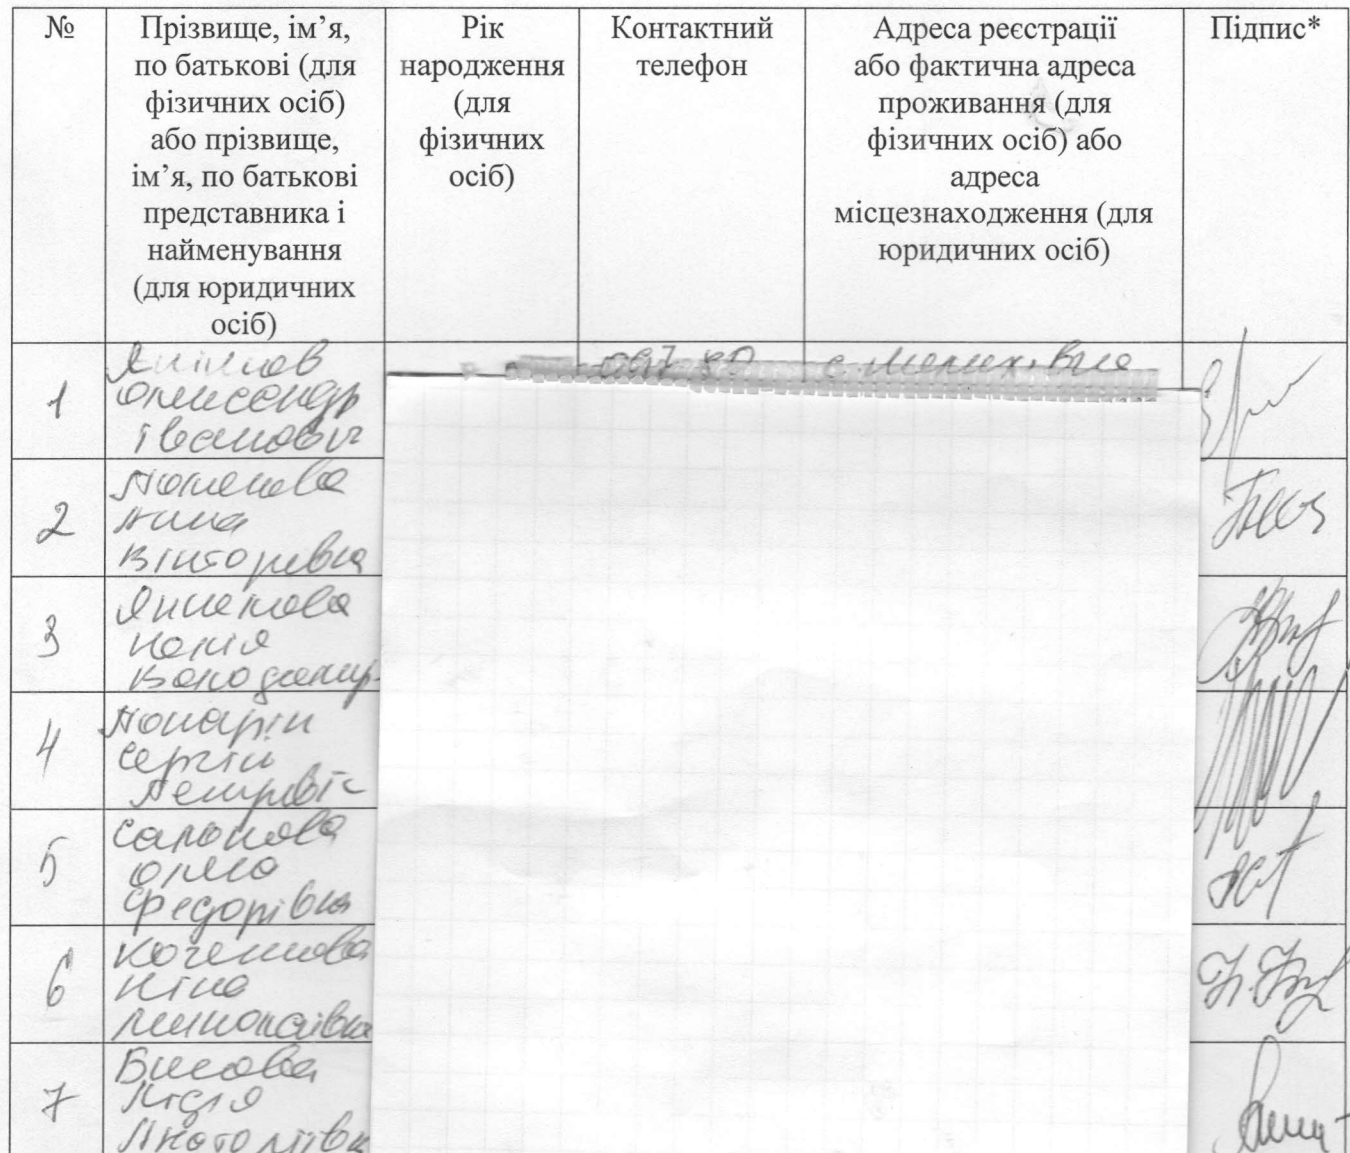 №
Прізвище, ім’я,
по батькові (для
фізичних осіб)
або прізвище,
ім’я, по батькові
представника і
найменування
(для юридичних
осіб)
Рік
народження
(для
фізичних
осіб)
Контактний
телефон
Адреса реєстрації
або фактична адреса
проживання (для
фізичних осіб) або
адреса
місцезнаходження (для
юридичних осіб)
Підпис*
1
Олександр
Іванович
2
Вікторівна
3
Юлія
Володимир
4
Сергій
Петрович
5
Ольга
Федорівна
6
Ніна
Миколаївна
7
Лідія
Анатоліївн